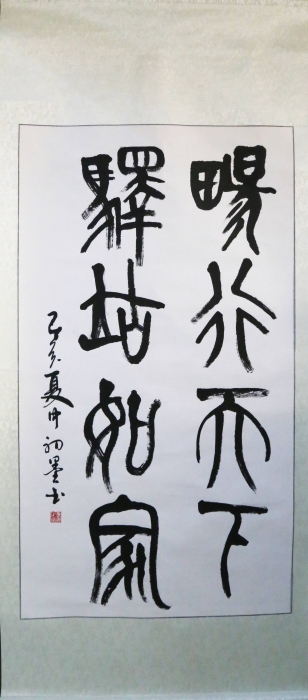 暢行天下
驛站如家
己亥夏中 翔墨书